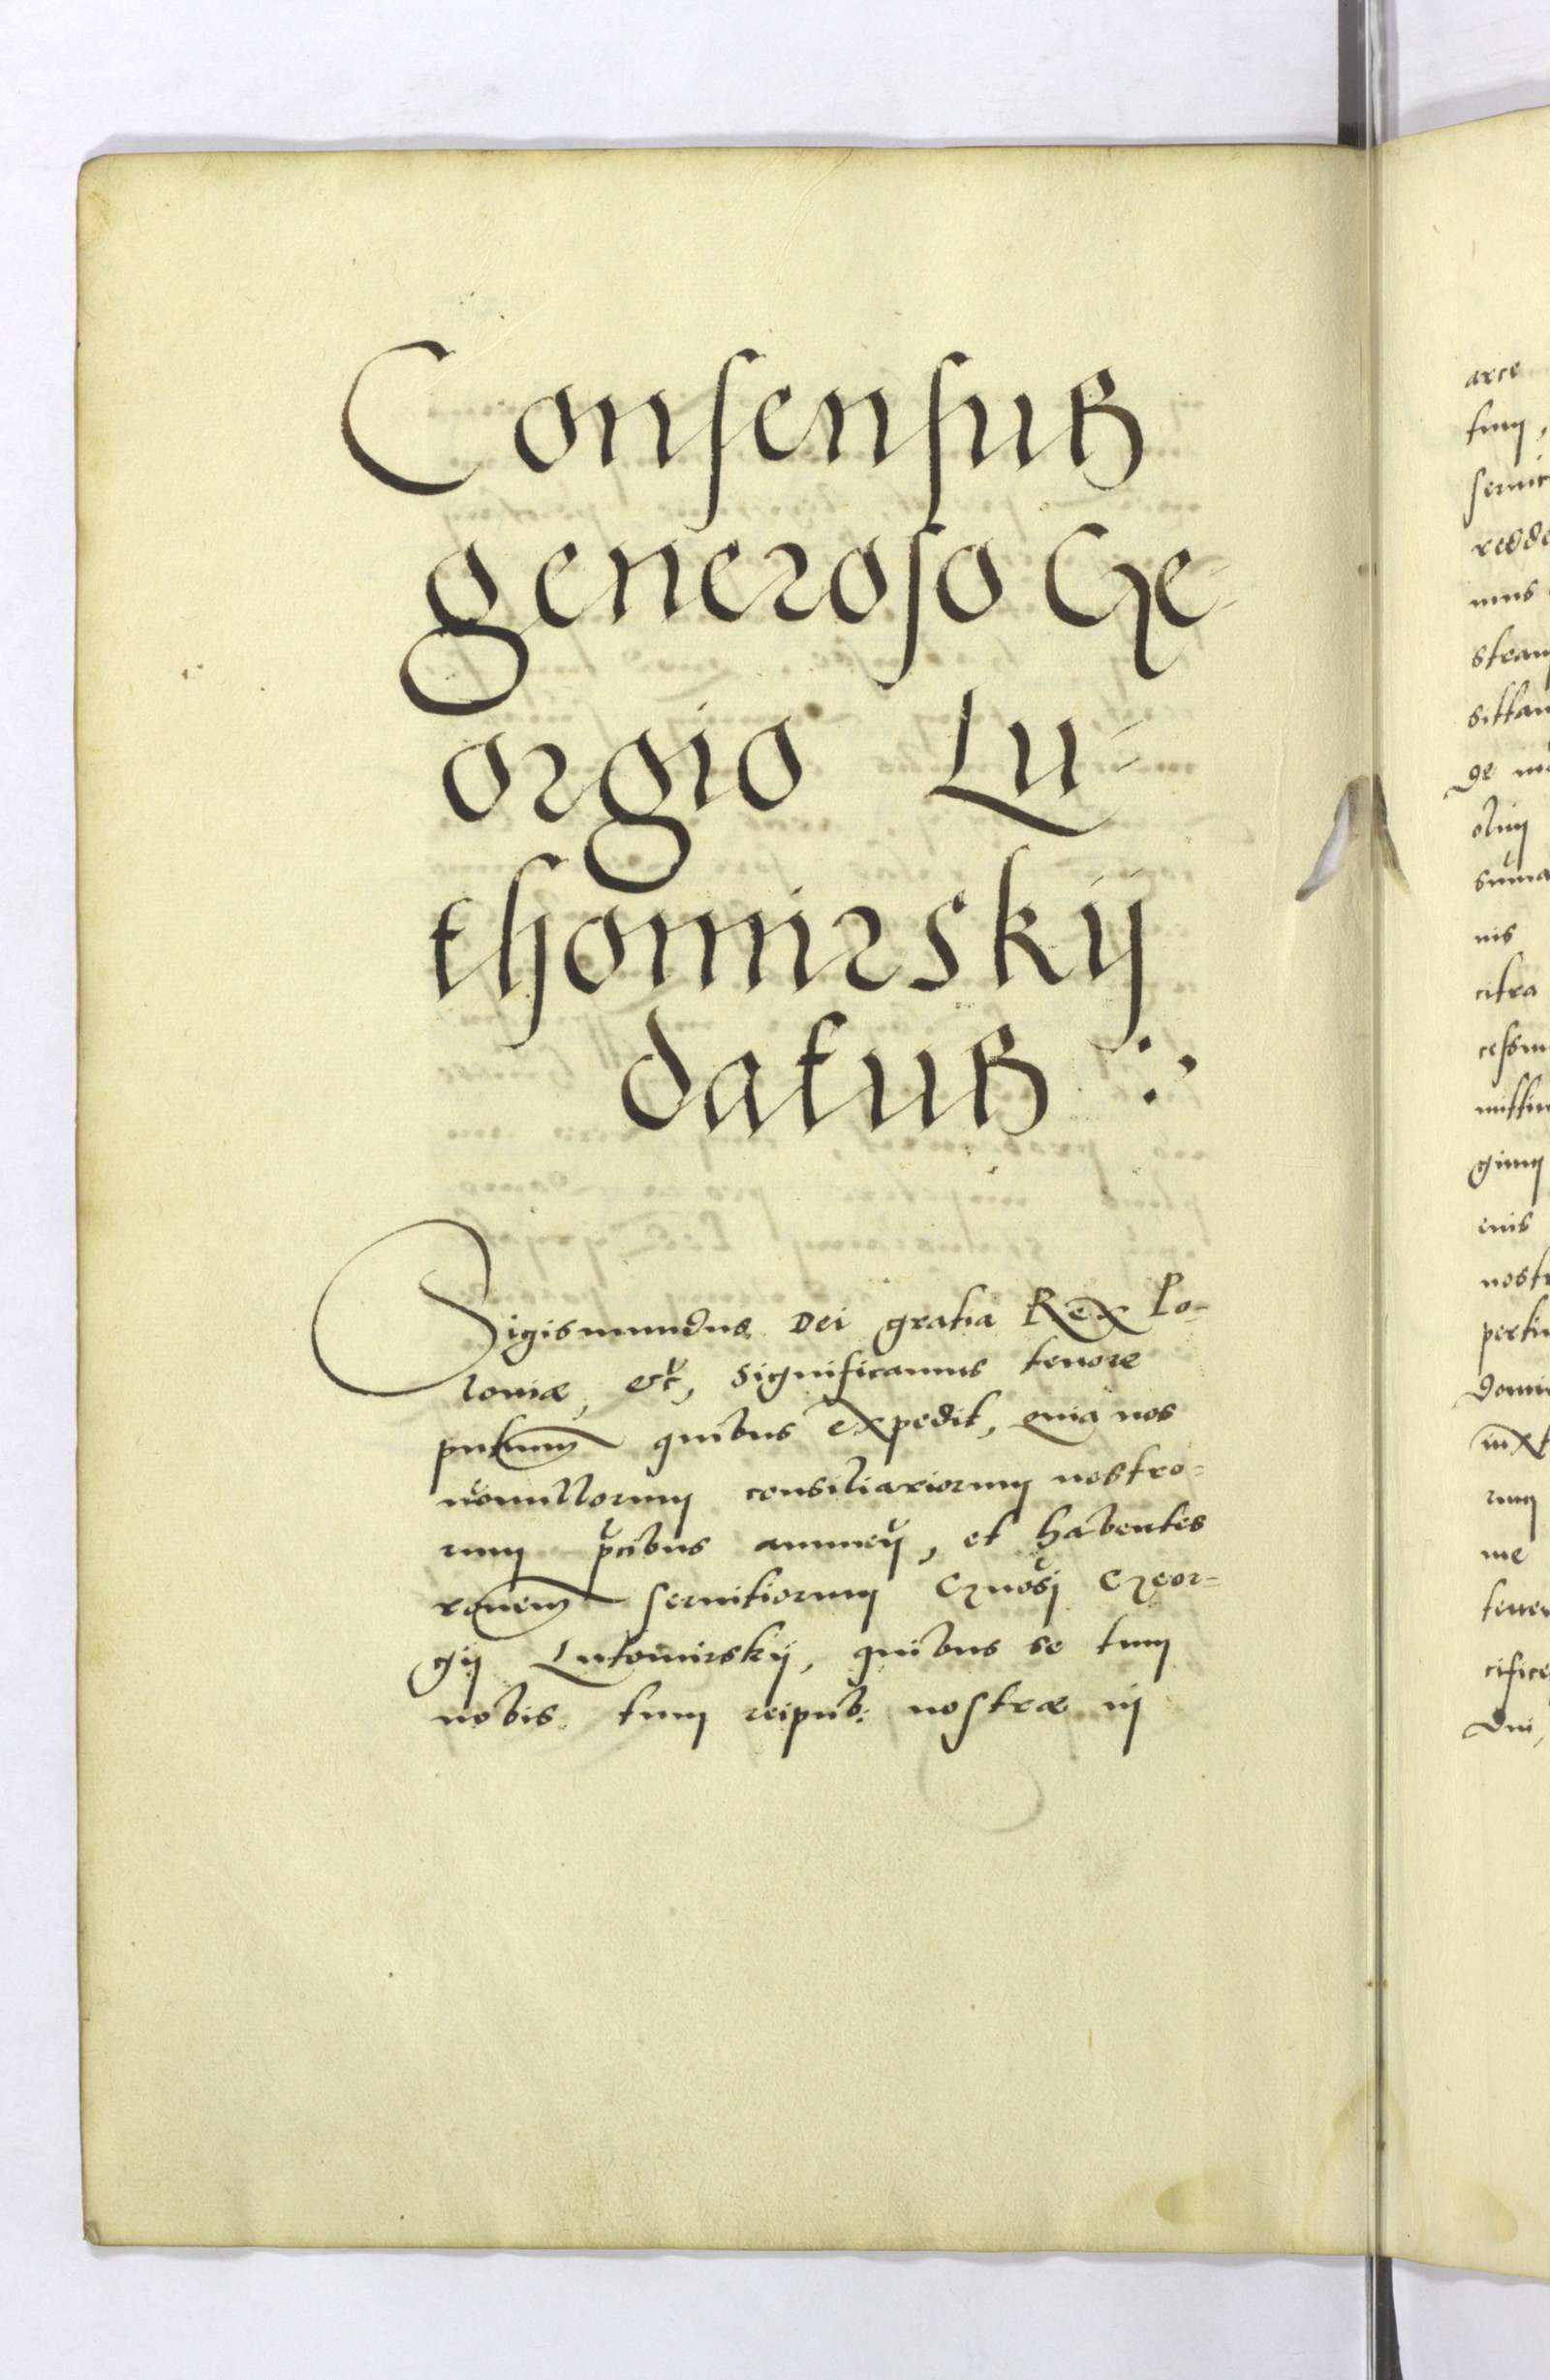 Consensus
generoso Ge-
orgio Lu-
thomirskij
datus :,
Sigismundus Dei gratia Rex Po-
loniæ, etc, Significamus tenore
pñtium quibus expedit, quia nos
nõnullorum consiliariorum nostro-
rum p̃cibus annueñ, et habentes
rõnem servitiorum Gñosi Geor-
gij Lutomirskij, quibus se tum
nobis tum reipub: nostræ in
arce
tum,
servit
redde
mus
stram
sittan
de
olim
sũma
nis
citra
cessim
mittim
gium
enis
nostr
pertin
domi
iuxt
rum
me
tener
cifice
Dni,